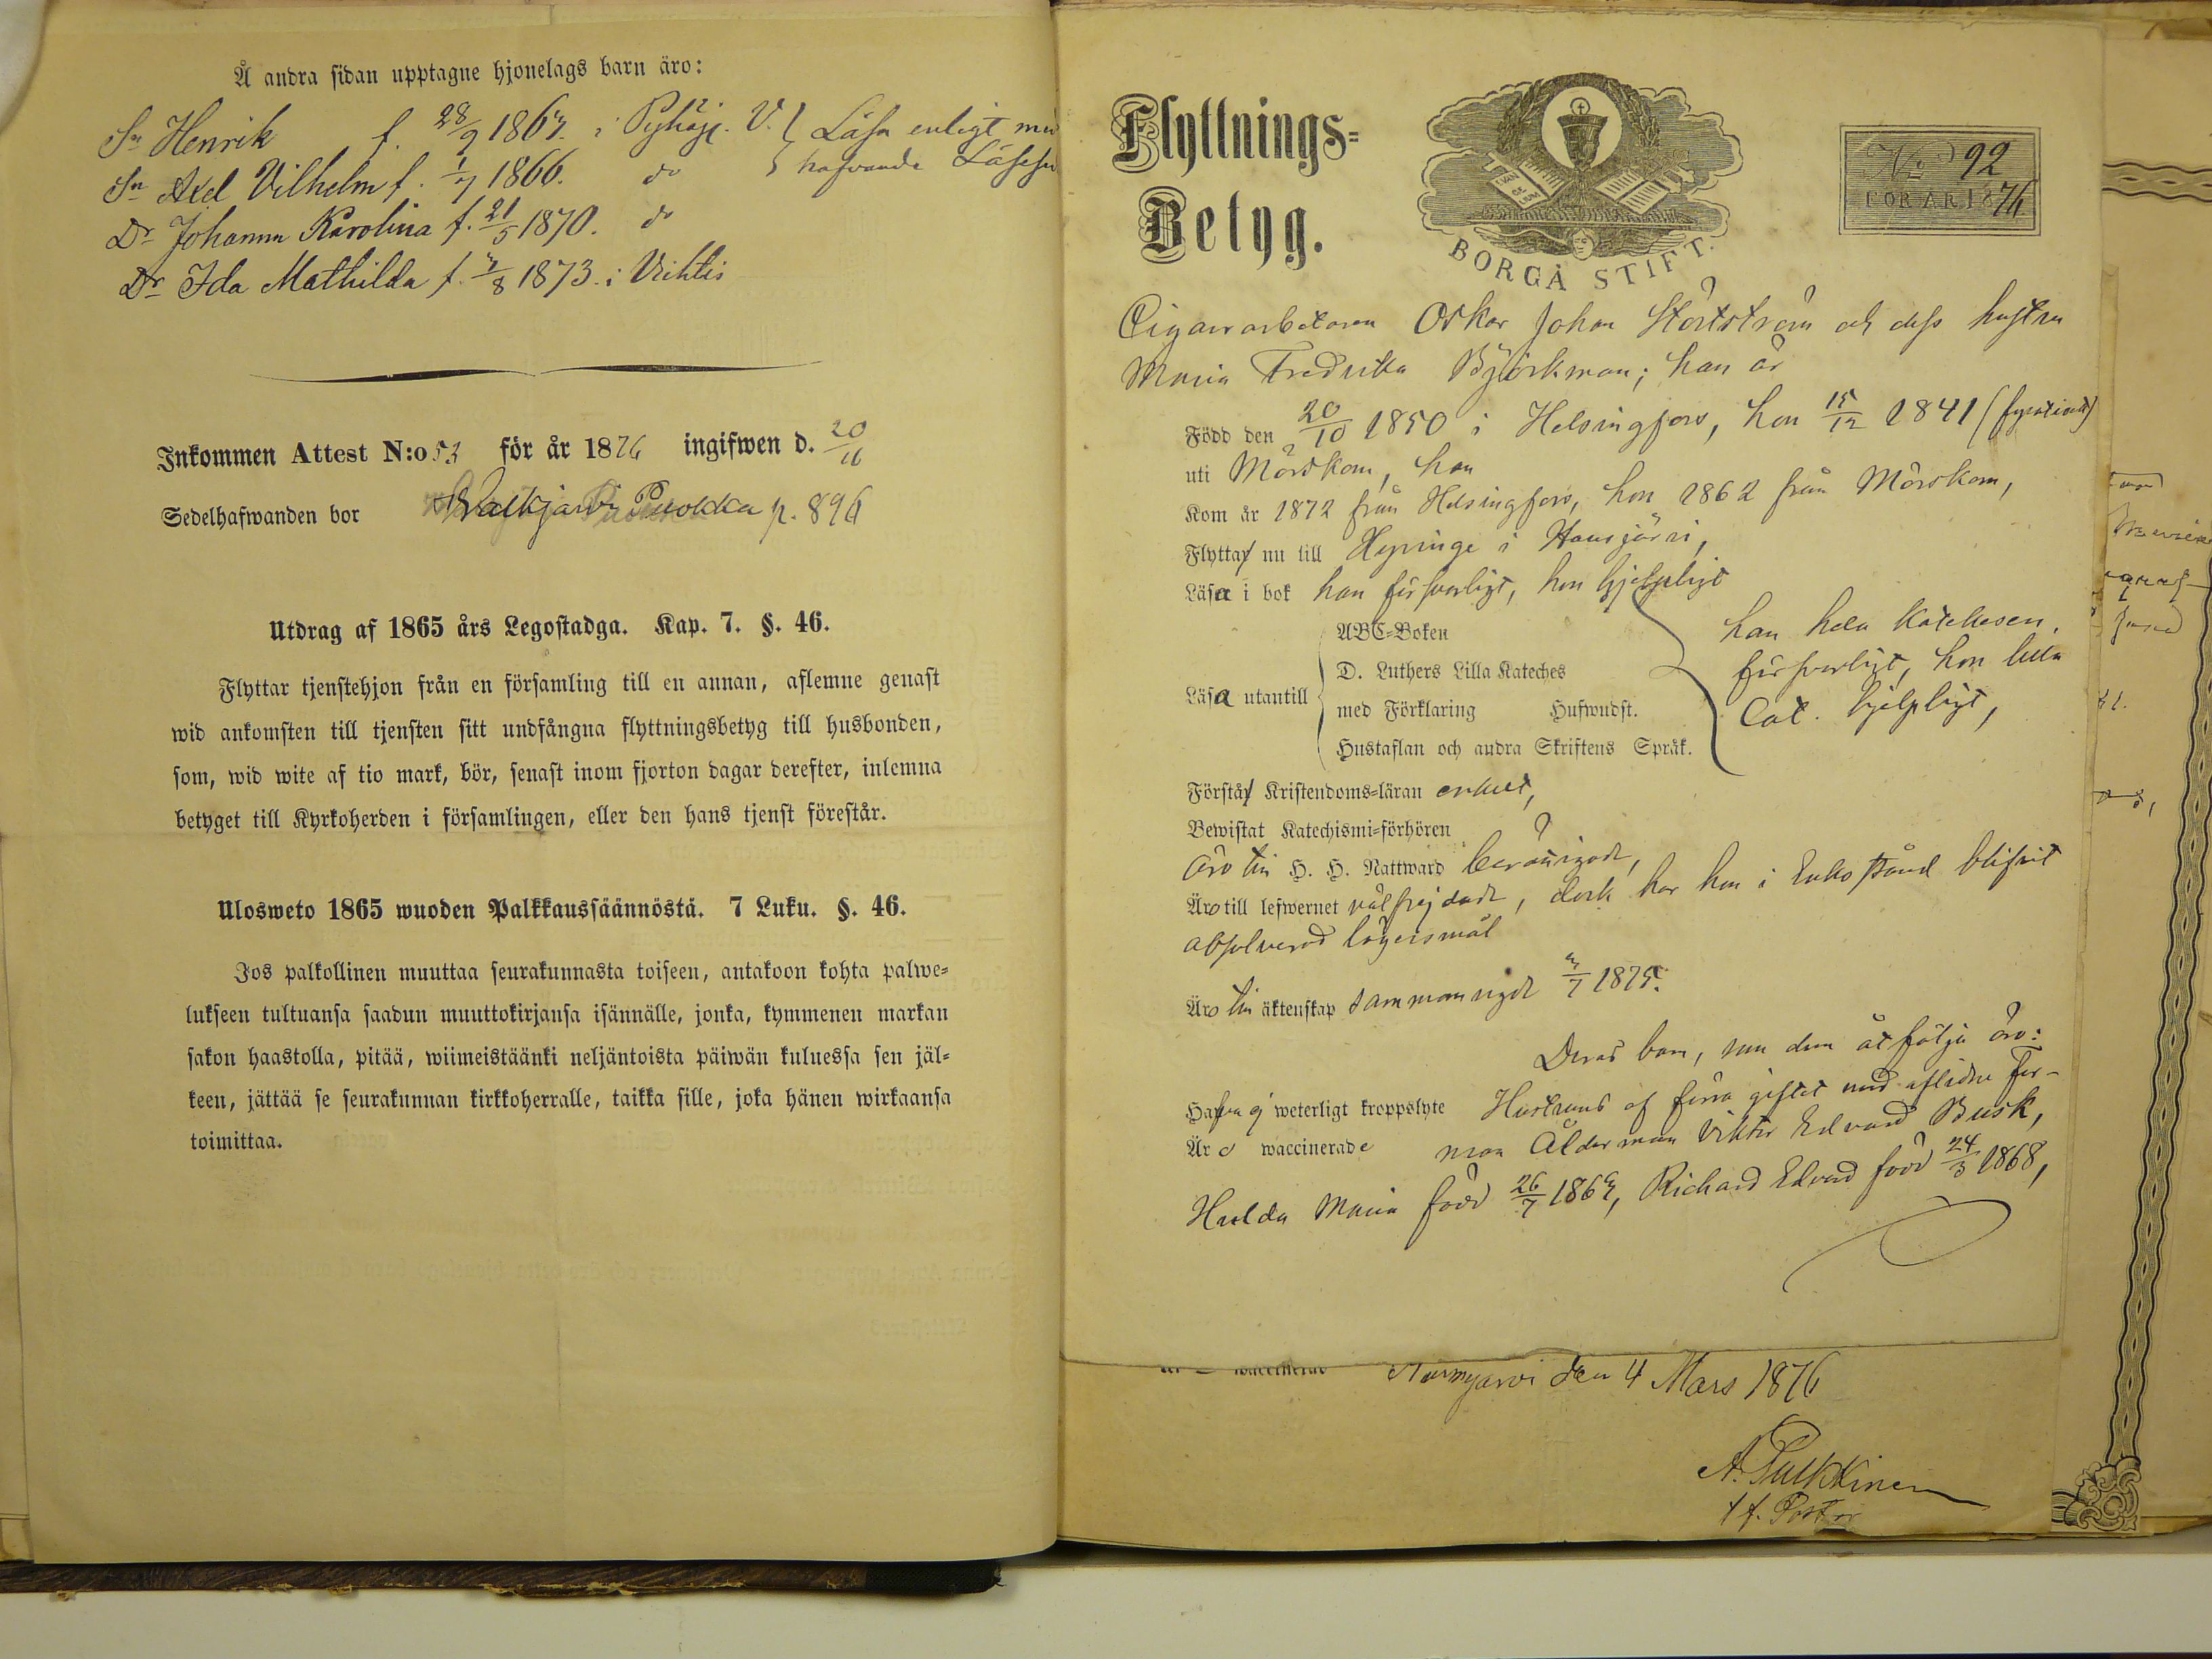 Å andra sidan upptagne hjonelags barn äro:
Sn Henrik f. 28/9 1863. i Pyhäj. V. Läsa enligt
Sn Axel Vilhelm f. 1/7 1866. do hafvande
Dr Johanna Karolina f. 21/5 1870. do
Dr Ida Mathilda f. 3/8 1873. i Vichtis
Inkommen Attest N:o 53 för år 1876 ingifwen d. 20/11
Sedelhafwanden bor Walkjärvi Puokka p. 896
Utdrag af 1865 års Legostadga. Kap. 7. §. 46.
Flyttar tjenstehjon från en församling till en annan, aflemne genast
wid ankomsten till tjensten sitt undfångna flyttningsbetyg till husbonden,
som, wid wite af tio mark, bör, senast inom fjorton dagar derefter, inlemna
betyget till Kyrkoherden i församlingen, eller den hans tjenst förestår.
Ulosweto 1865 wuoden Palkkaussäännöstä. 7 Luku. §. 46.
Jos palkollinen muuttaa seurakunnasta toiseen, antakoon kohta palwe=
lukseen tultuansa saadun muuttokirjansa isännälle, jonka, kymmenen markan
sakon haastolla, pitää, wiimeistäänki neljäntoista päiwän kuluessa sen jäl=
keen, jättää se seurakunnan kirkkoherralle, taikka sille, joka hänen wirkaansa
toimittaa.
Flyttnings=
Betyg.
BORGÅ STIFT.
No 92
FÖR ÅR 1876
Cigarrarbetaren Oskar Johan Störtström och dess hustru
Maria Fredrika Björkman; han är
Född den 20/10 1850 i Helsingfors, hon 15/12 1841
uti Mörskom, han
Kom år 1872 från Helsingfors, hon 1862 från Mörskom,
Flyttar nu till Hyvinge i Hausjärvi,
Läsa i bok han försvarligt, hon hjelpligt
ABC=Boken
D. Luthers Lilla Kateches
Läsa utantill med Förklaring Hufwudst.
Hustaflan och andra Skriftens Språk.
han hela Katekesen
försvarligt, hon lilla
Cat. hjelpligt,
Förstår Kristendoms=läran enkelt,
Bewistat Katechismi=förhören
Äro till H. H. Nattward berättigade,
Äro till lefwernet välfrejdade, dock har hon i Enkestånd blifvit
absolverad lägersmål
Äro till äktenskap sammanvigde 3/7 1875.
Deras barn, som dem åtfölja äro:
Hafva ej weterligt kroppslyte Hustruns af förra giftet med aflidne For-
Äro waccinerade man Ålderman Viktor Edvard Busk,
Hulda Maria född 26/7 1864, Richard Edvard född 24/3 1868,
Nurmijärvi den 4 Mars 1876
A. Pulkkinen
tf. Pastor